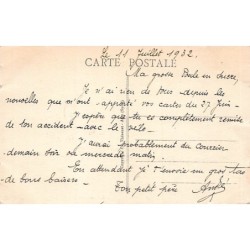 Le 11 Juillet 1932.
CARTE POSTALE
Ma grosse Boule en sucre,
Je n'ai rien de vous depuis les
nouvelles que m'ont apporté vos cartes du 27 Juin.
J'espère que tu es complètement remise
de ton accident avec le vélo.
J'aurai probablement du courrier
demain soir ou mercredi matin.
En attendant je t'envoie un gros tas
de bons baisers.
Ton petit père